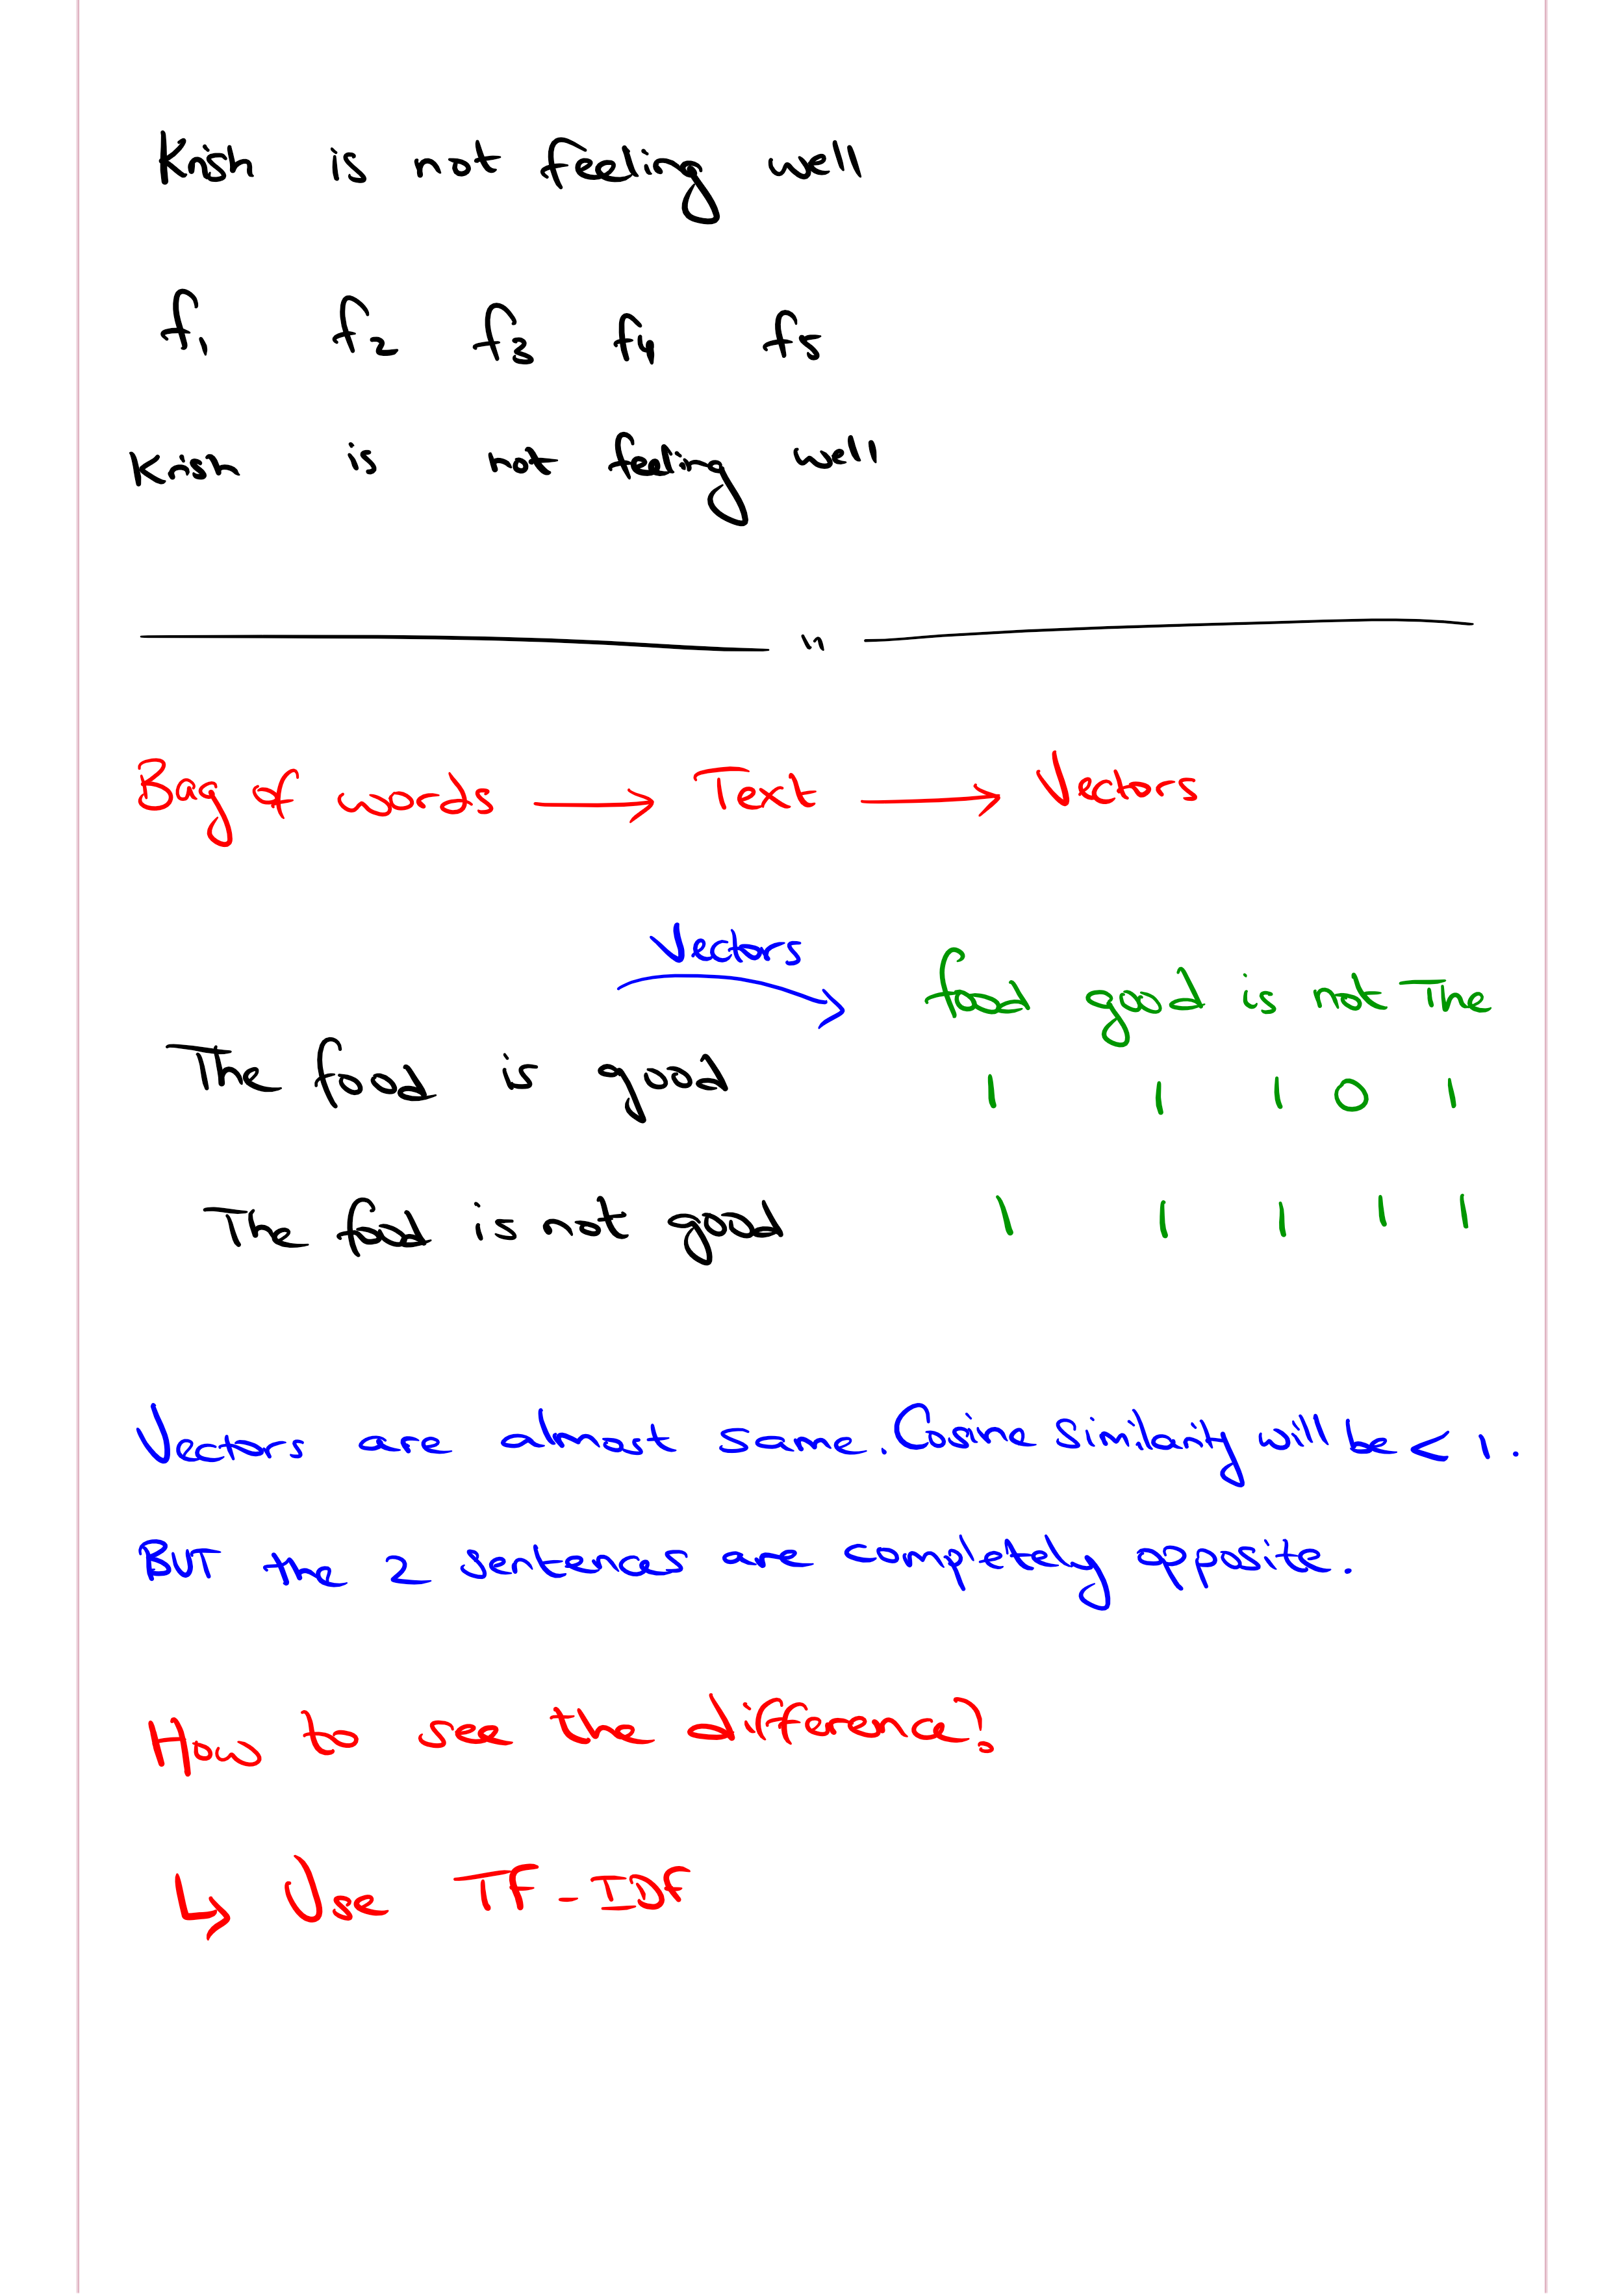 Krish is not feeling well
f1 f2 f3 f4 f5
Krish is not feeling well
"
Bag of words → Text → Vectors
Vectors
food good is not The
The food is good 1 1 1 0 1
The food is not good 1 1 1 1 1
Vectors are almost same. Cosine Similarity will be < 1.
BUT the 2 sentences are completely opposite.
How to see the difference?
↳ Use TF-IDF